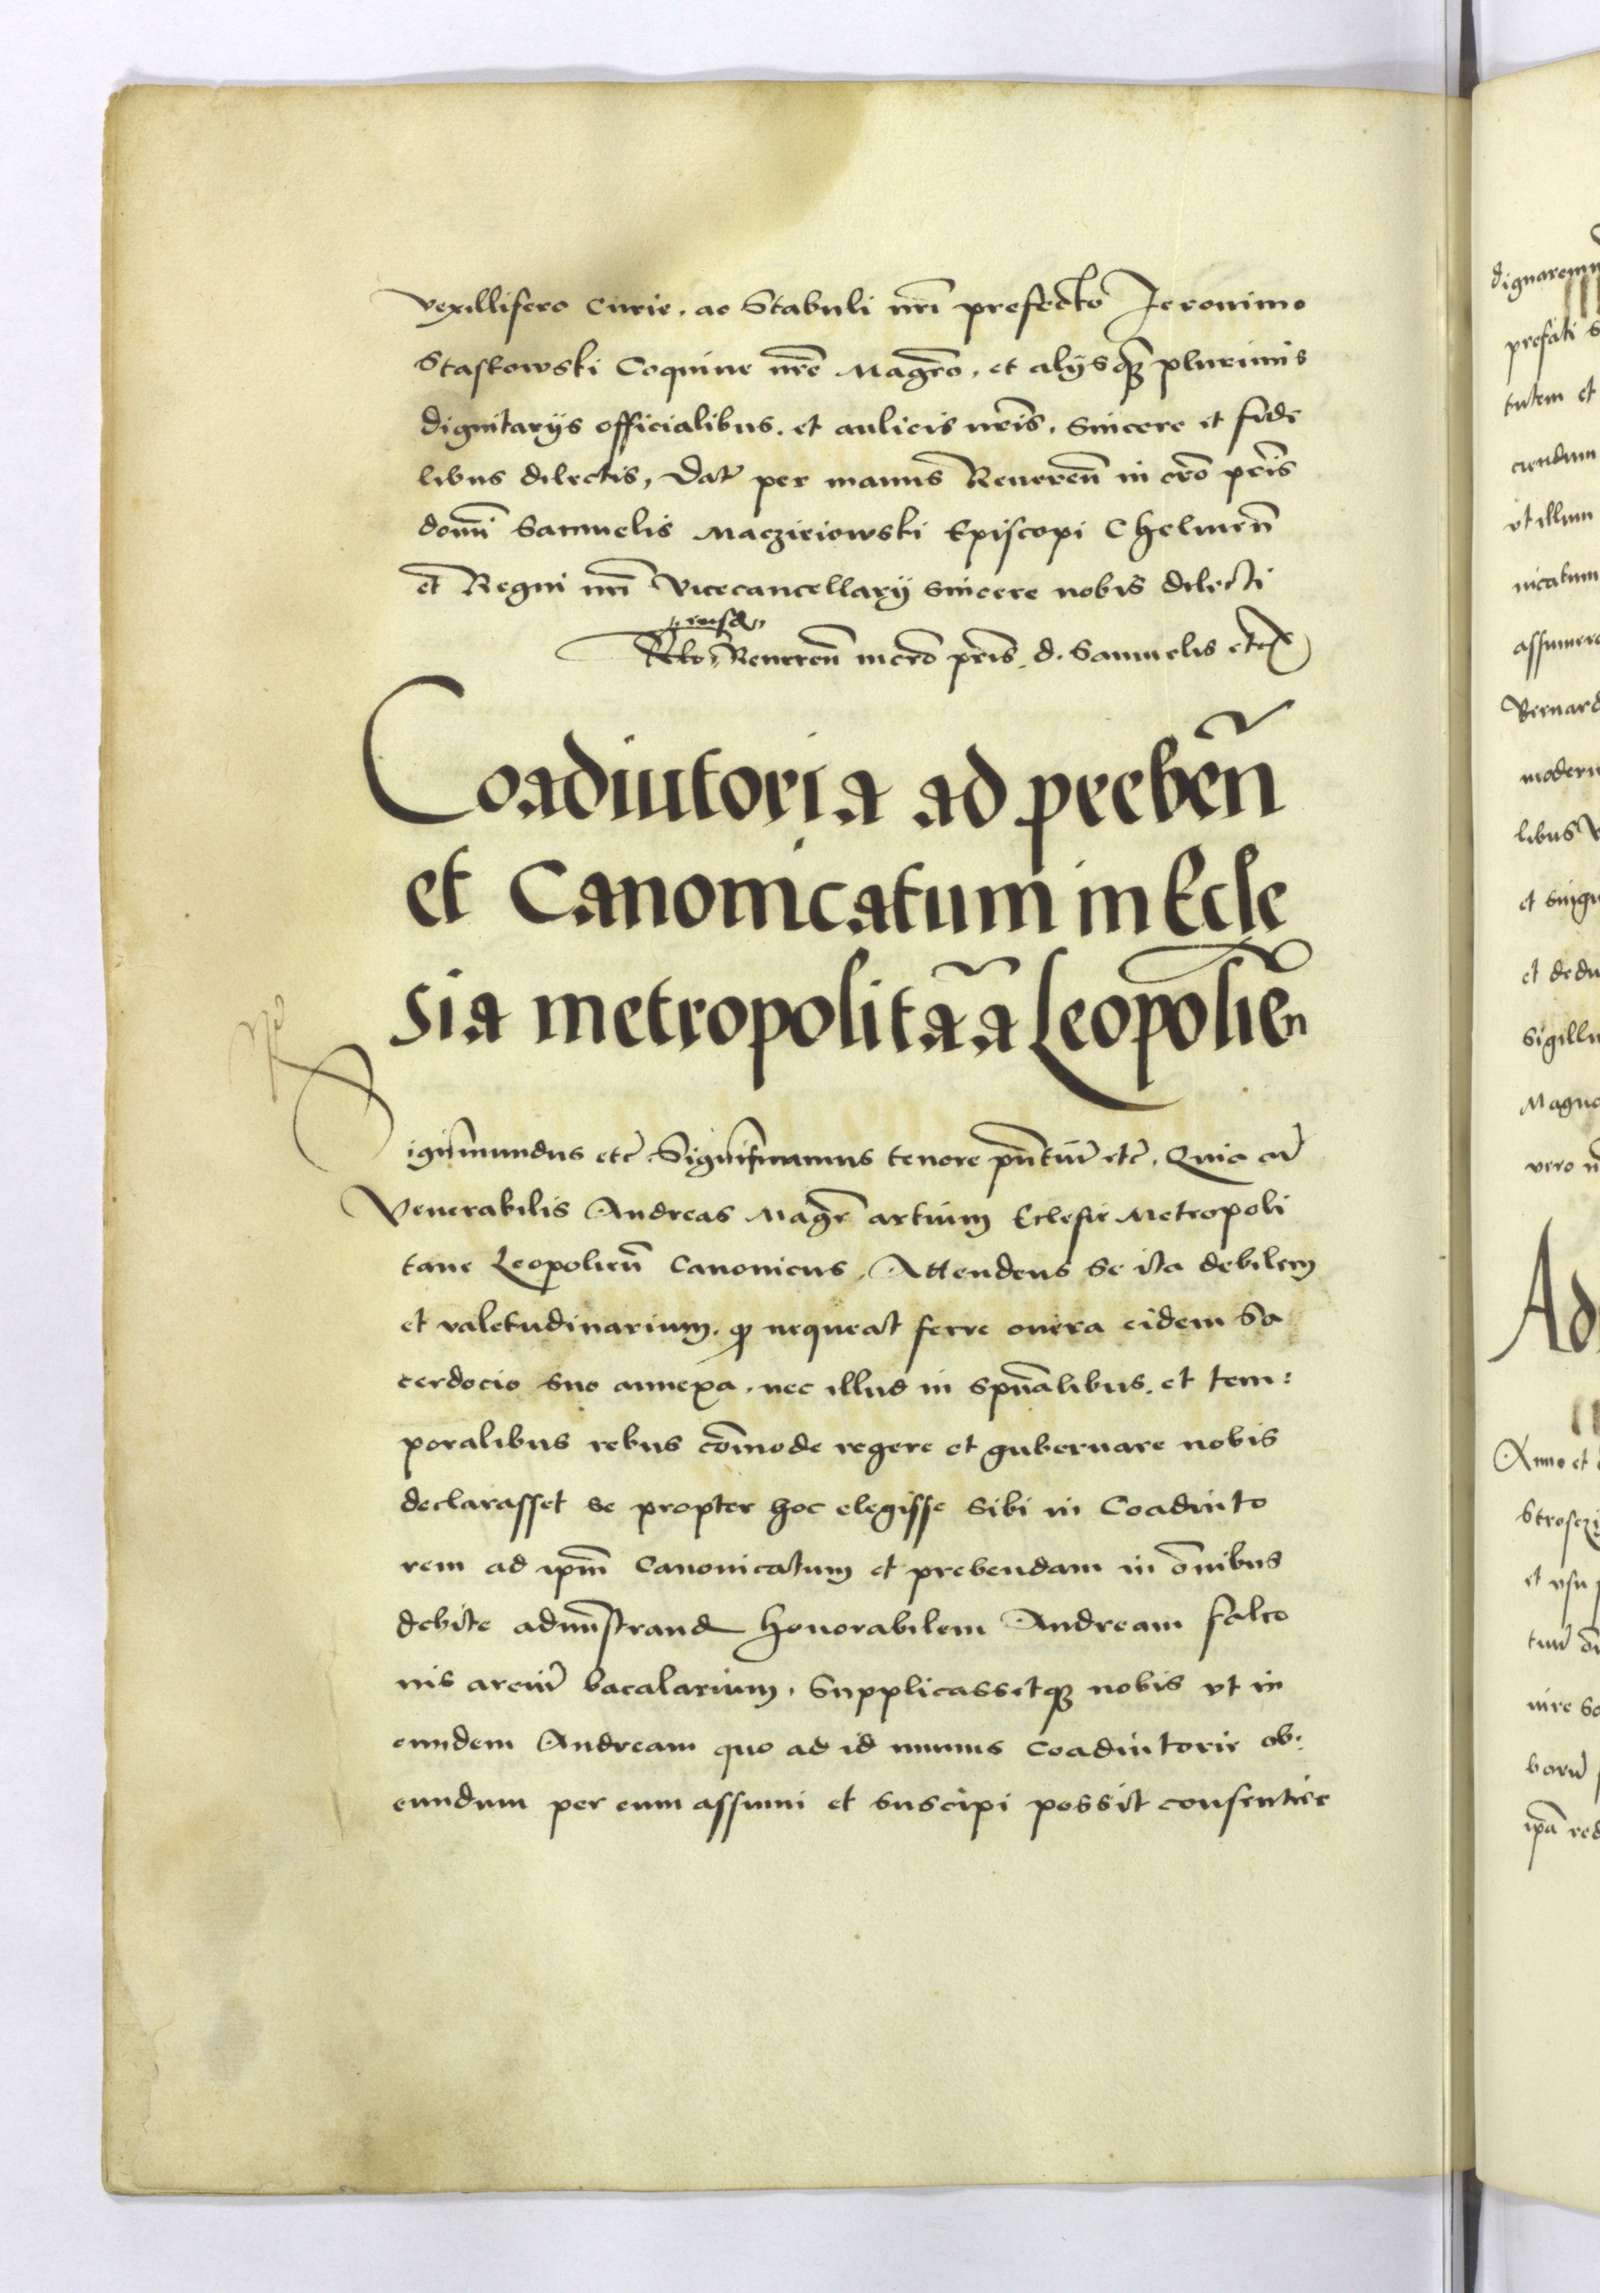 vexillifero Curie. ac Stabuli nrī prefecto Jeronimo
Staskowski Coquine nrē Magrō, et alijsqȝ plurimis
dignitarijs officialibus. et aulicis nrīs. Sincere et fide
libus dilectis, Datꝭ per manus Reueren̄ in crō prīs
domī Samuelis Maczieiowski Episcopi Chelmen̄
et Regni nrī Vicecancellarij sincere nobis dilecti
eiusd
Rlo Reueren̄ in crō prīs. d. Samuelis etc
Coadiutoria ad preben̄
et Canonicatum in Ecle
sia metropolitāa Leopolien̄
Sigismundus etc̄ Significamus tenore pn̄tiū etc̄. Quia cū
Venerabilis Andreas Magr̄ artium Eclesie Metropoli
tane Leopolien̄ Canonicus, Attendens se ita debilem
et valetudinarium. qꝫ nequeat ferre onera eidem Sa
cerdocio suo annexa. nec illud in spūalibus. et tem:
poralibus rebus cōmode regere et gubernare nobis
declarasset se propter hoc elegisse sibi in Coadiuto
rem ad ipm̄ Canonicatum et prebendam in ōnibus
debite admn̄strand honorabilem Andream falco
nis arciū bacalarium. Supplicassetqȝ nobis vt in
eundem Andream quo ad id munus Coadiutorie ob:
eundum per eum assumi et suscipi possit consentire
dignaremu
prefati s
tutem et
ciendum
vt illum
nicatum
assumere
Bernard
modern
libus V
et singu
et dedu
Sigillu
Magno
vero n
Ad
Anno et
et vsu p
iure So
ipā red